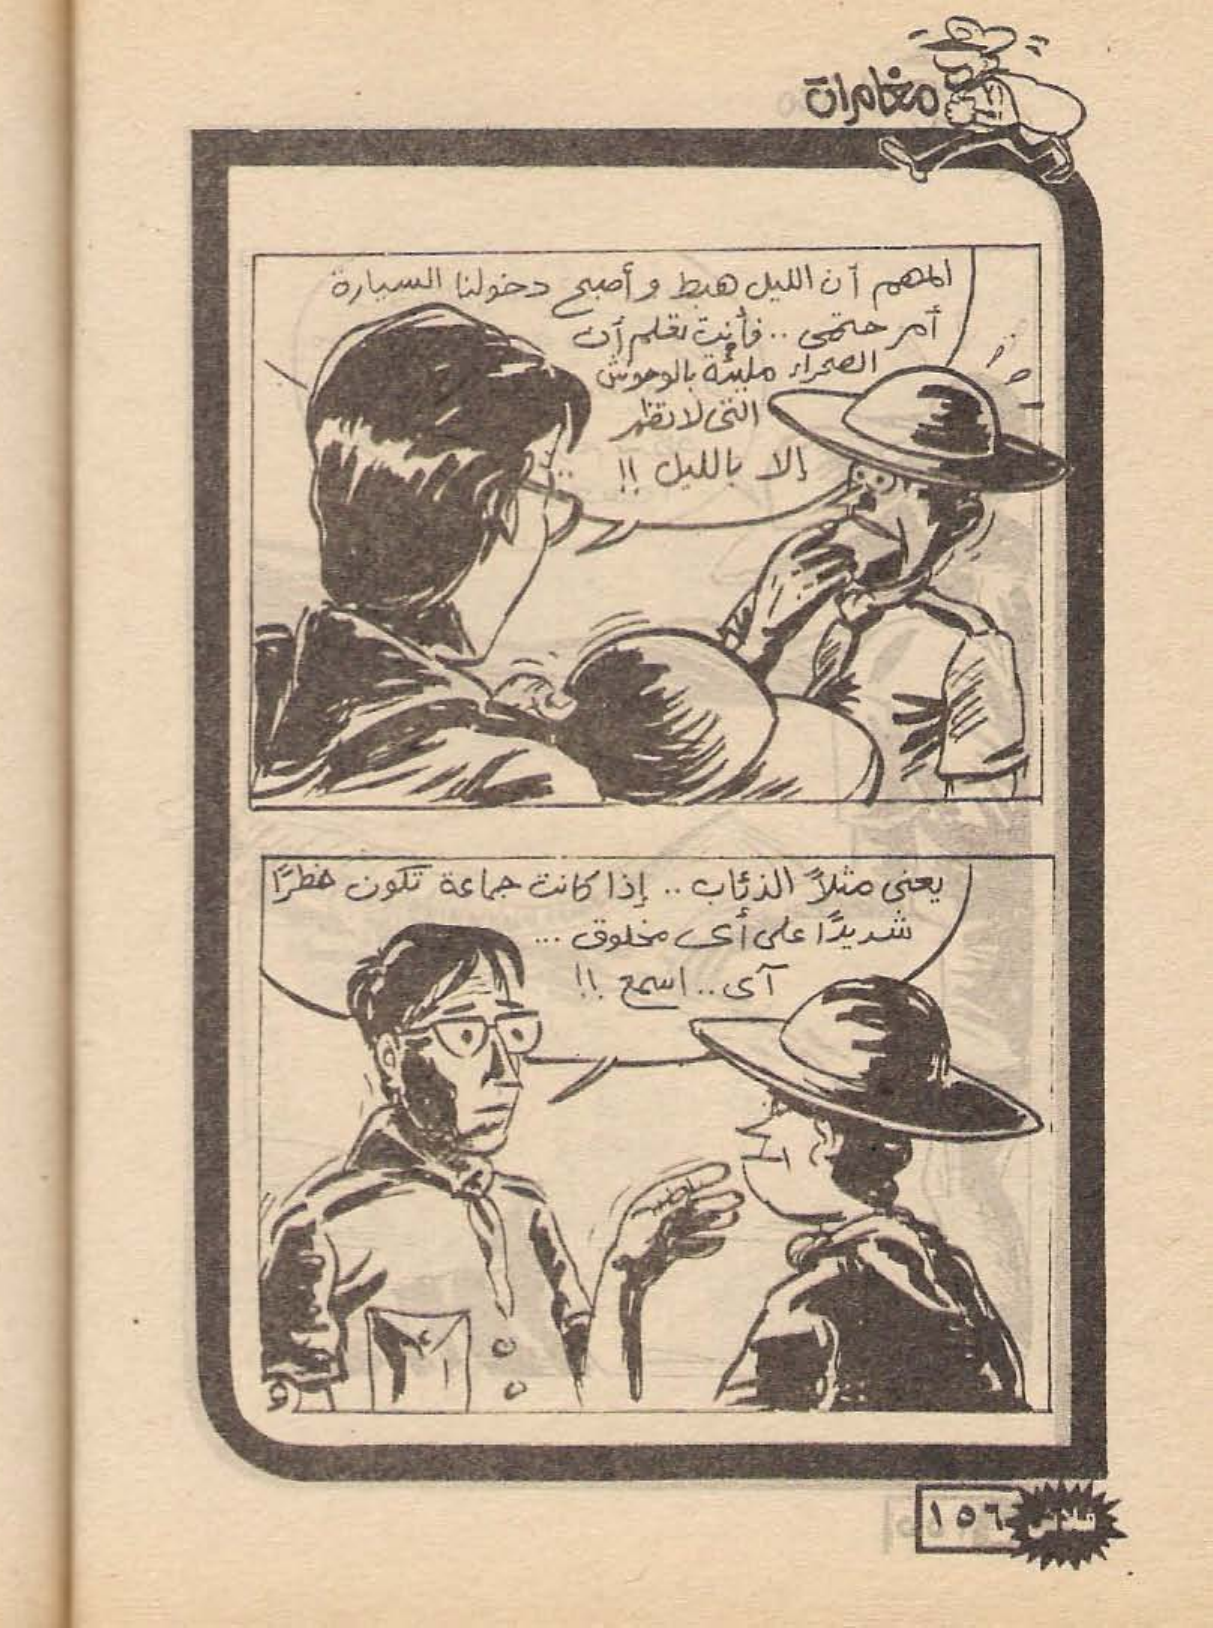 مغامرات
المهم أن الليل هبط وأصبح دخولنا السيارة
أمر حتمى .. فأنت تعلم أن
الصحراء مليئة بالوحوش
التى لا تظهر
إلا بالليل !!
يعنى مثلاً الذئاب .. إذا كانت جماعة تكون خطرًا
شديدًا على أى مخلوق ...
آى .. اسمع !!
فلاش
١٥٦